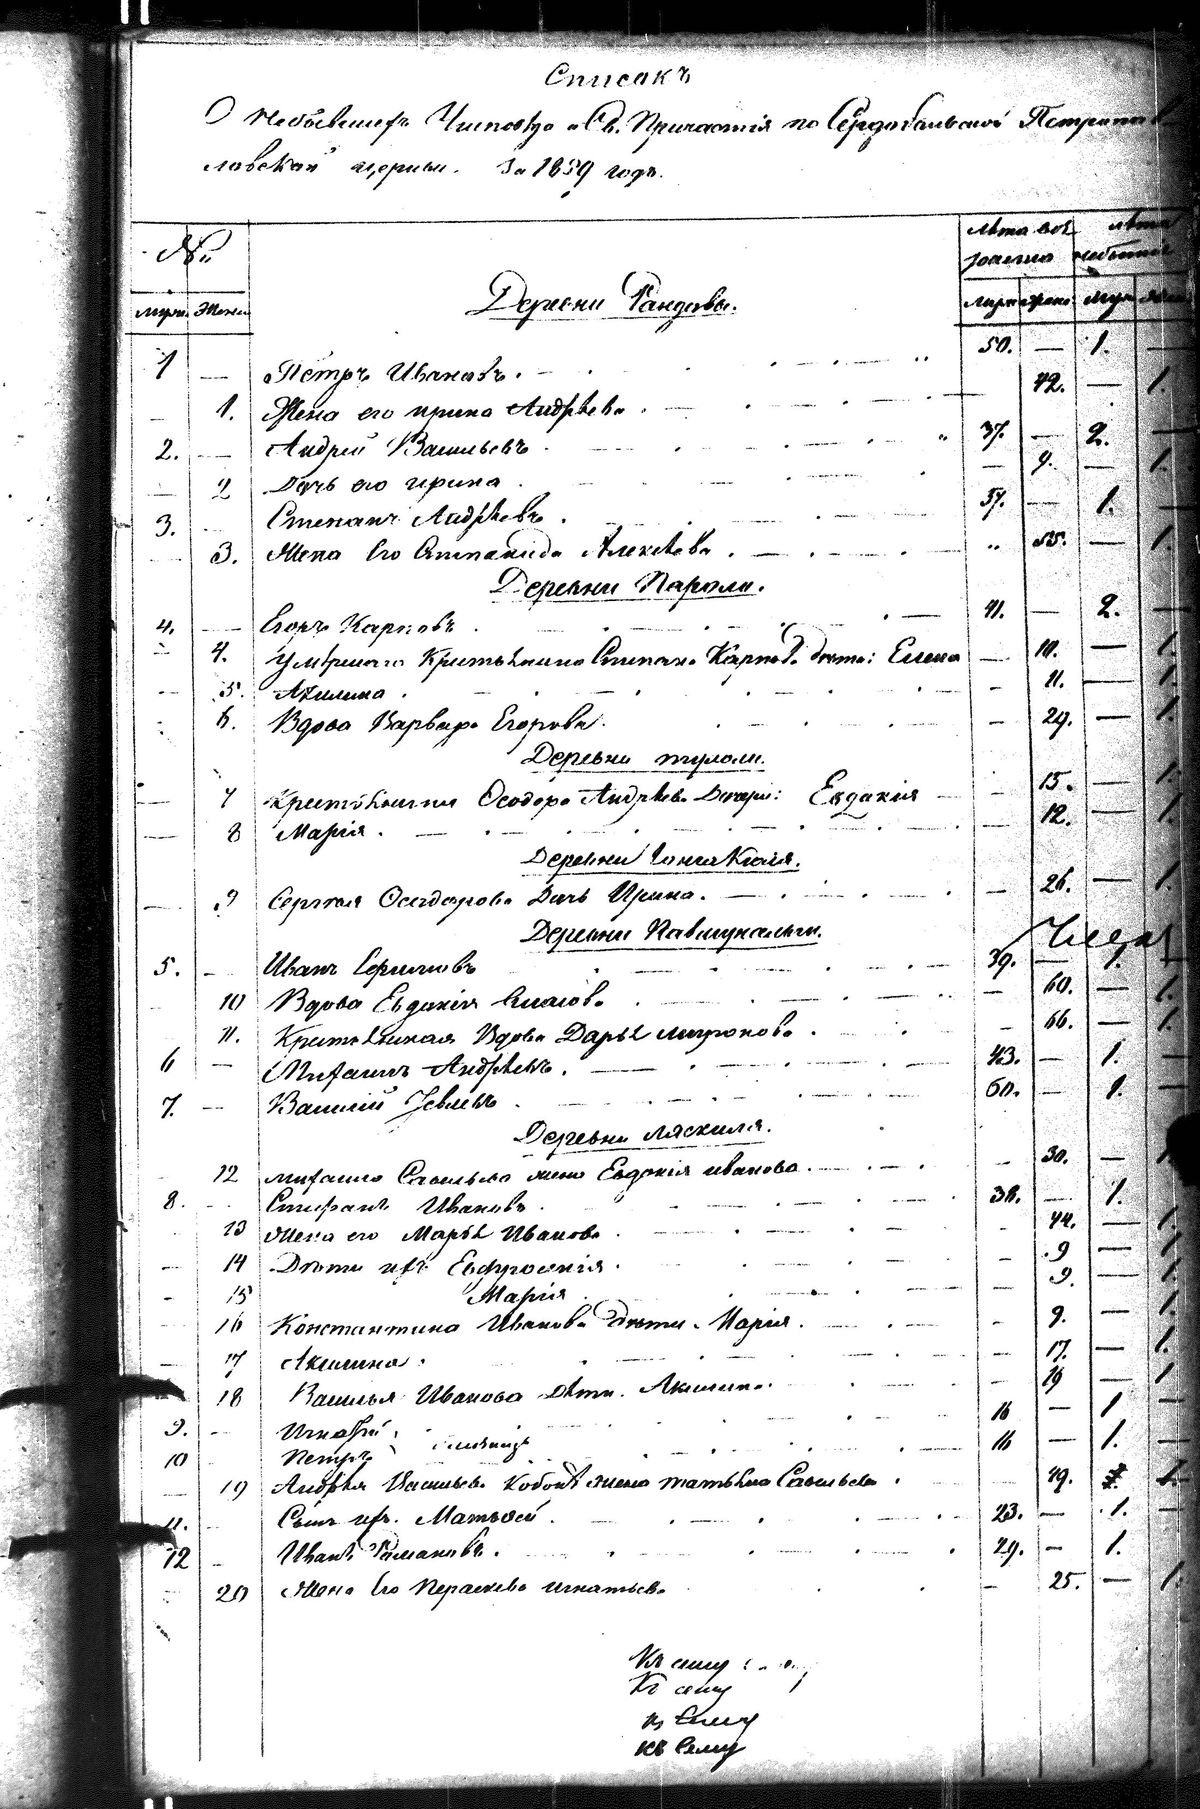 Списокъ
О небывшихъ у исповѣди и Св. Причастія по Сердобольской Петропав
ловской церкви. За 1859 годъ.
№
лѣта отъ рожденія лѣта небытія
муж. Жен. муж. жен. муж. жен.
Деревни Рандовы.
1 — Петръ Ивановъ. 50. — 1. —
— 1. Жена его Ирина Андрѣева 42. — 1.
2. — Андрей Васильевъ 37. — 2. —
— 2 Дочь его Ирина — 9. — 1.
3. Степанъ Андрѣевъ. 57. — 1. —
3. Жена Его Степанида Алексѣева. 55. — 1.
Деревни Пароли.
4. — Егоръ Карповъ 41. — 2. —
4. Умершаго Крестьянина Степана Карпова дѣти: Елена — 10. — 1.
5. Акилина. — 11. — 1.
6. Вдова Варвара Егорова. — 29. — 1.
Деревни Тулоли.
— 7 Крестьянина Ѳеодора Андрѣева Дочери: Евдакія — 15. — 1.
— 8 Марія. — 12. — 1.
Деревни
— 9 Сергѣя Ѳеодорова Дочь Ирина. — 26. — 1.
Деревни
5. — Иванъ Ефимовъ 39. — 1.
10 Вдова Евдакія — 60. — 1.
11. Крестьянская Вдова Дарья Миронова. — 66. — 1.
6 — Михаилъ Андрѣевъ. 43. — 1. —
7. — Василій Іевлевъ. 60. — 1. —
Деревни Ляскиля.
12 Михаила Савельева жена Евдакія Иванова. 30. —
8. Стефанъ Ивановъ. 38. — 1.
13 Жена его Марья Иванова — 44. — 1.
14 Дѣти ихъ Евфросинія. — 9 — 1.
15 Марія — 9. — 1.
16 Константина Иванова дѣти Марія. 9. — 1.
— 17 Акилина. — 17. — 1.
18 Василья Иванова Дѣти. Акилина. — 19 — 1
9. — Игнатій 16 — 1
10 Петръ близнецы 16 — 1.
19 Андрея Васильева жена Татьяна Савельева. 49. 1.
11. — Сынъ ихъ. Матвей. 23. — 1.
12 — Иванъ Романовъ. 29. — 1.
20 Жена Его Перасковья Игнатьева — 25. — 1.
Къ сему
Къ сему
къ Сему
къ Сему